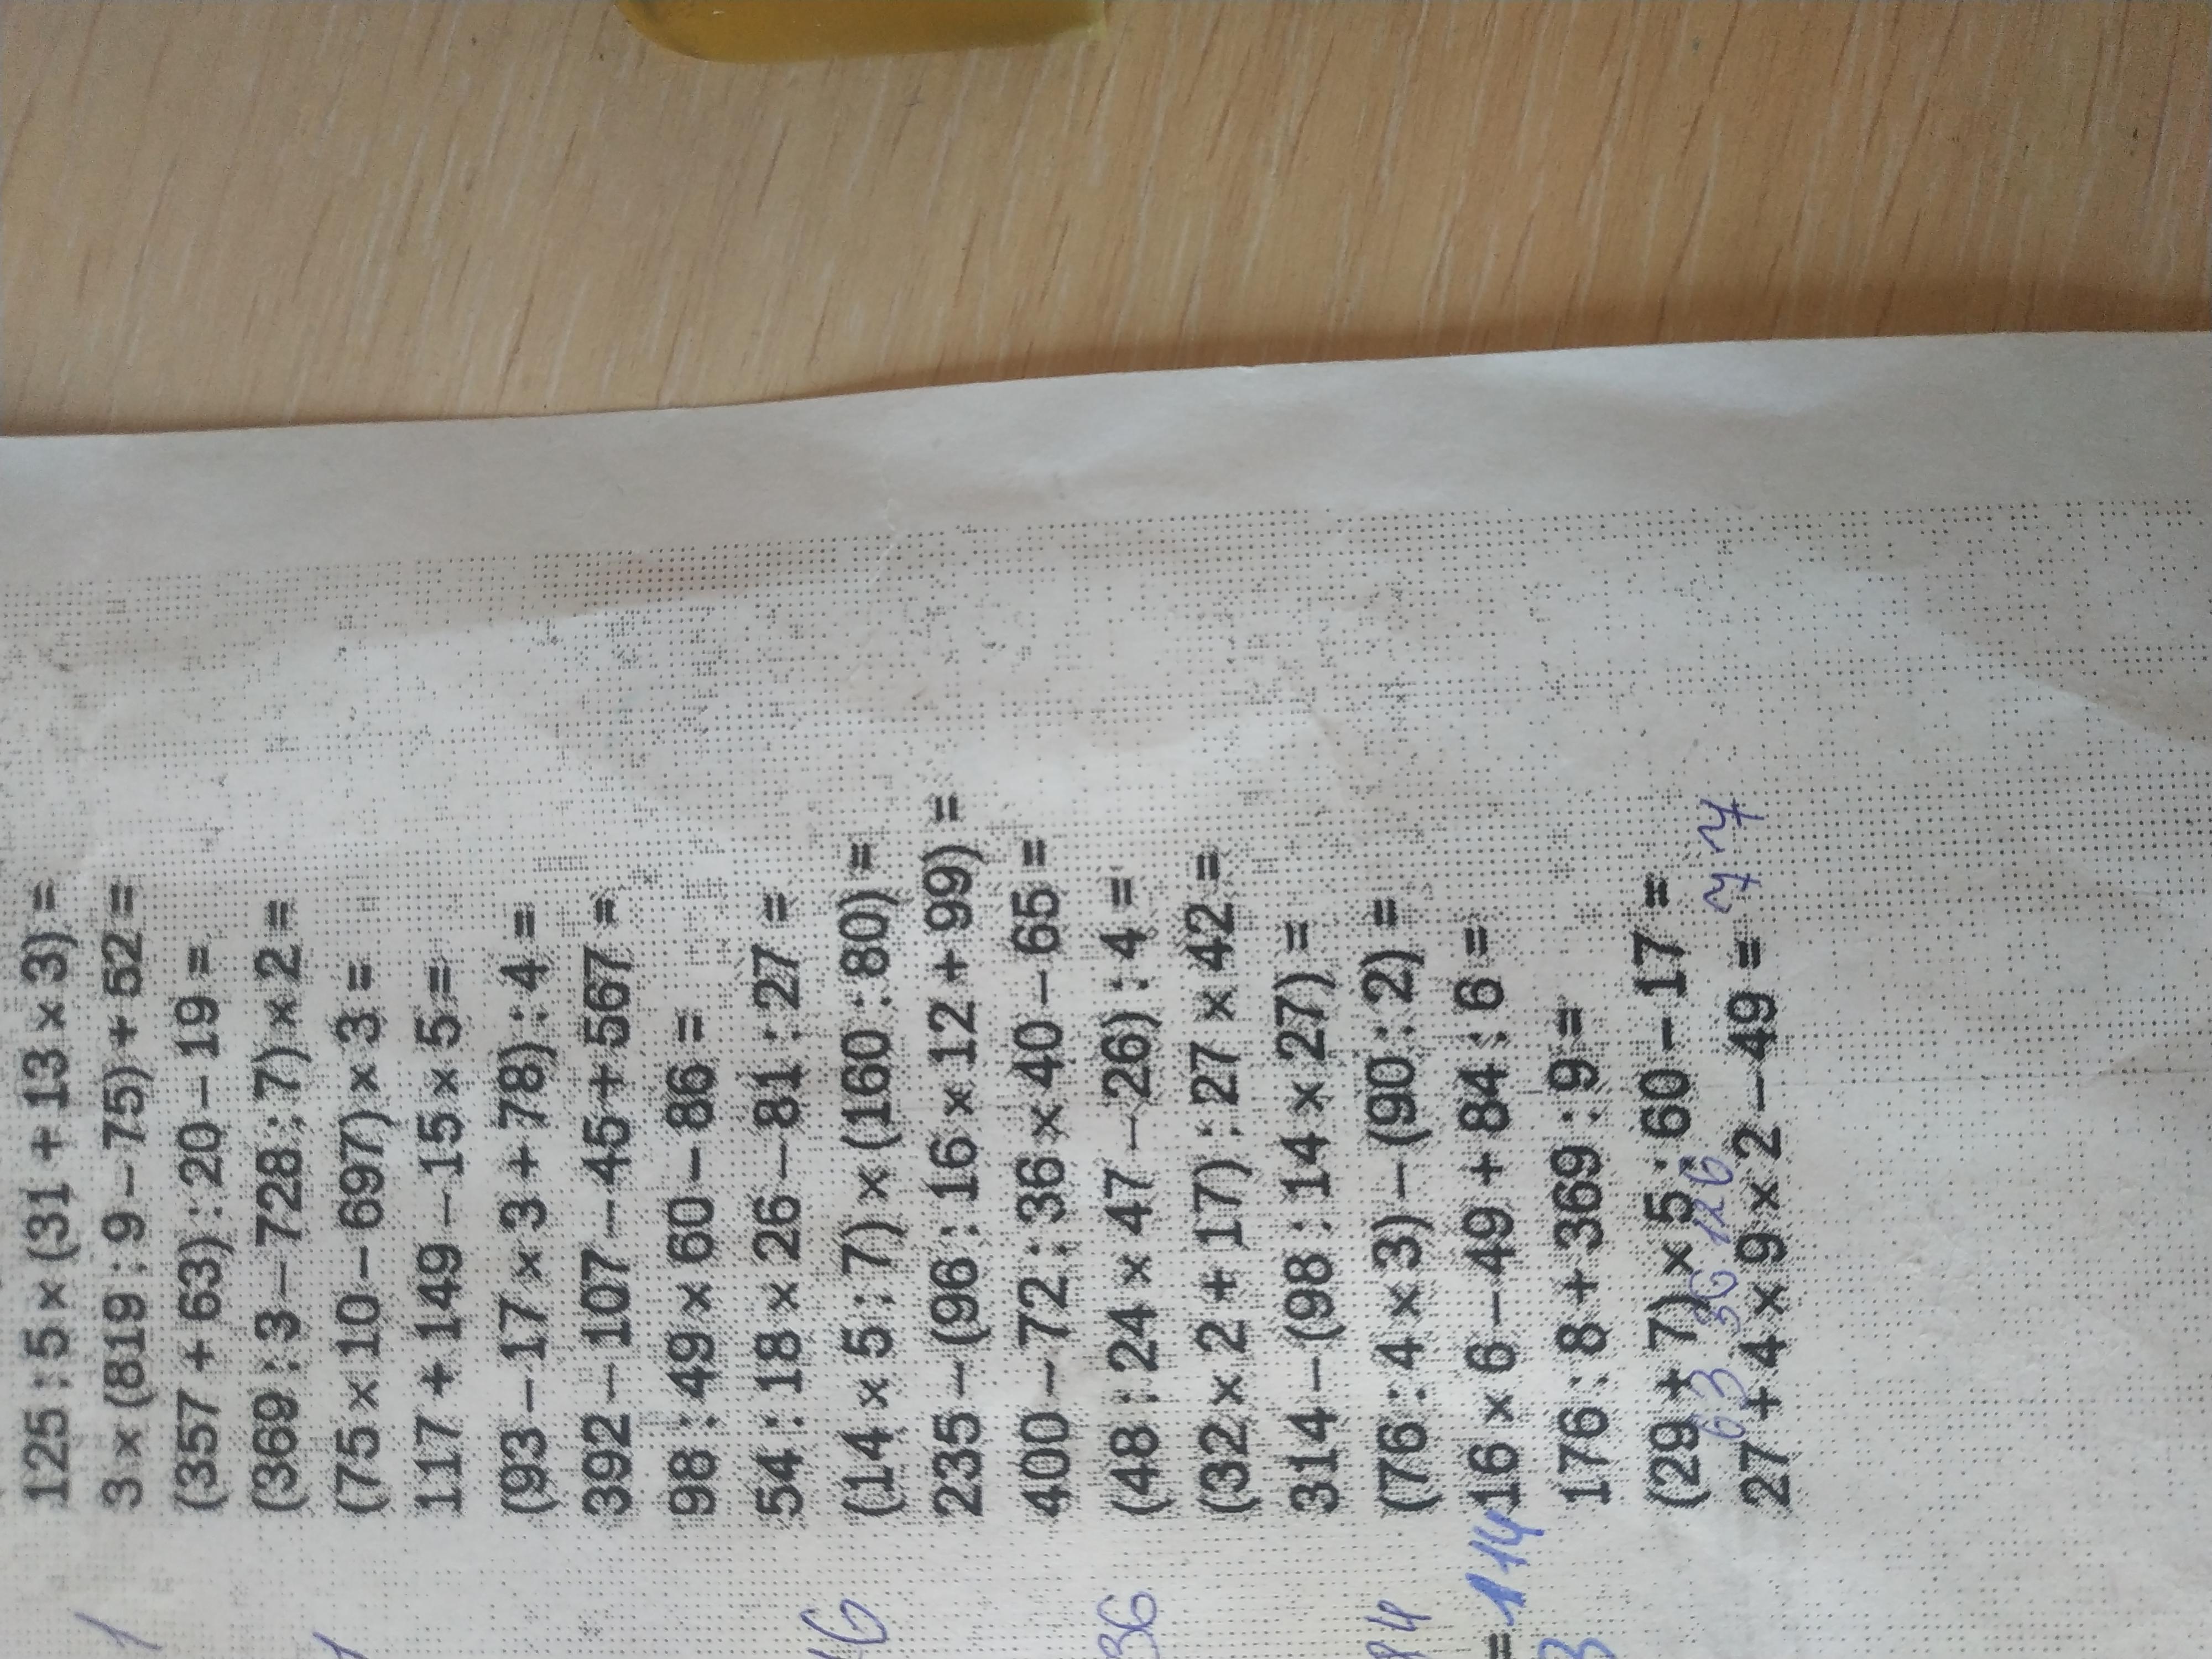 125 : 5 × (31 + 13 × 3) =
3 × (819 : 9 – 75) + 52 =
(357 + 63) : 20 – 19 =
(369 : 3 – 728 : 7) × 2 =
(75 × 10 – 697) × 3 =
117 + 149 – 15 × 5 =
(93 – 17 × 3 + 78) : 4 =
392 – 107 – 45 + 567 =
98 : 49 × 60 – 86 =
54 : 18 × 26 – 81 : 27 =
(14 × 5 : 7) × (160 : 80) =
235 – (96 : 16 × 12 + 99) =
400 – 72 : 36 × 40 – 65 =
36
(48 : 24 × 47 – 26) : 4 =
(32 × 2 + 17) : 27 × 42 =
314 – (98 : 14 × 27) =
(76 : 4 × 3) – (90 : 2) =
= 114
16 × 6 – 49 + 84 : 6 =
176 : 8 + 369 : 9 =
(29 + 7) × 5 : 60 – 17 =
63 36 126
27 + 4 × 9 × 2 – 49 =